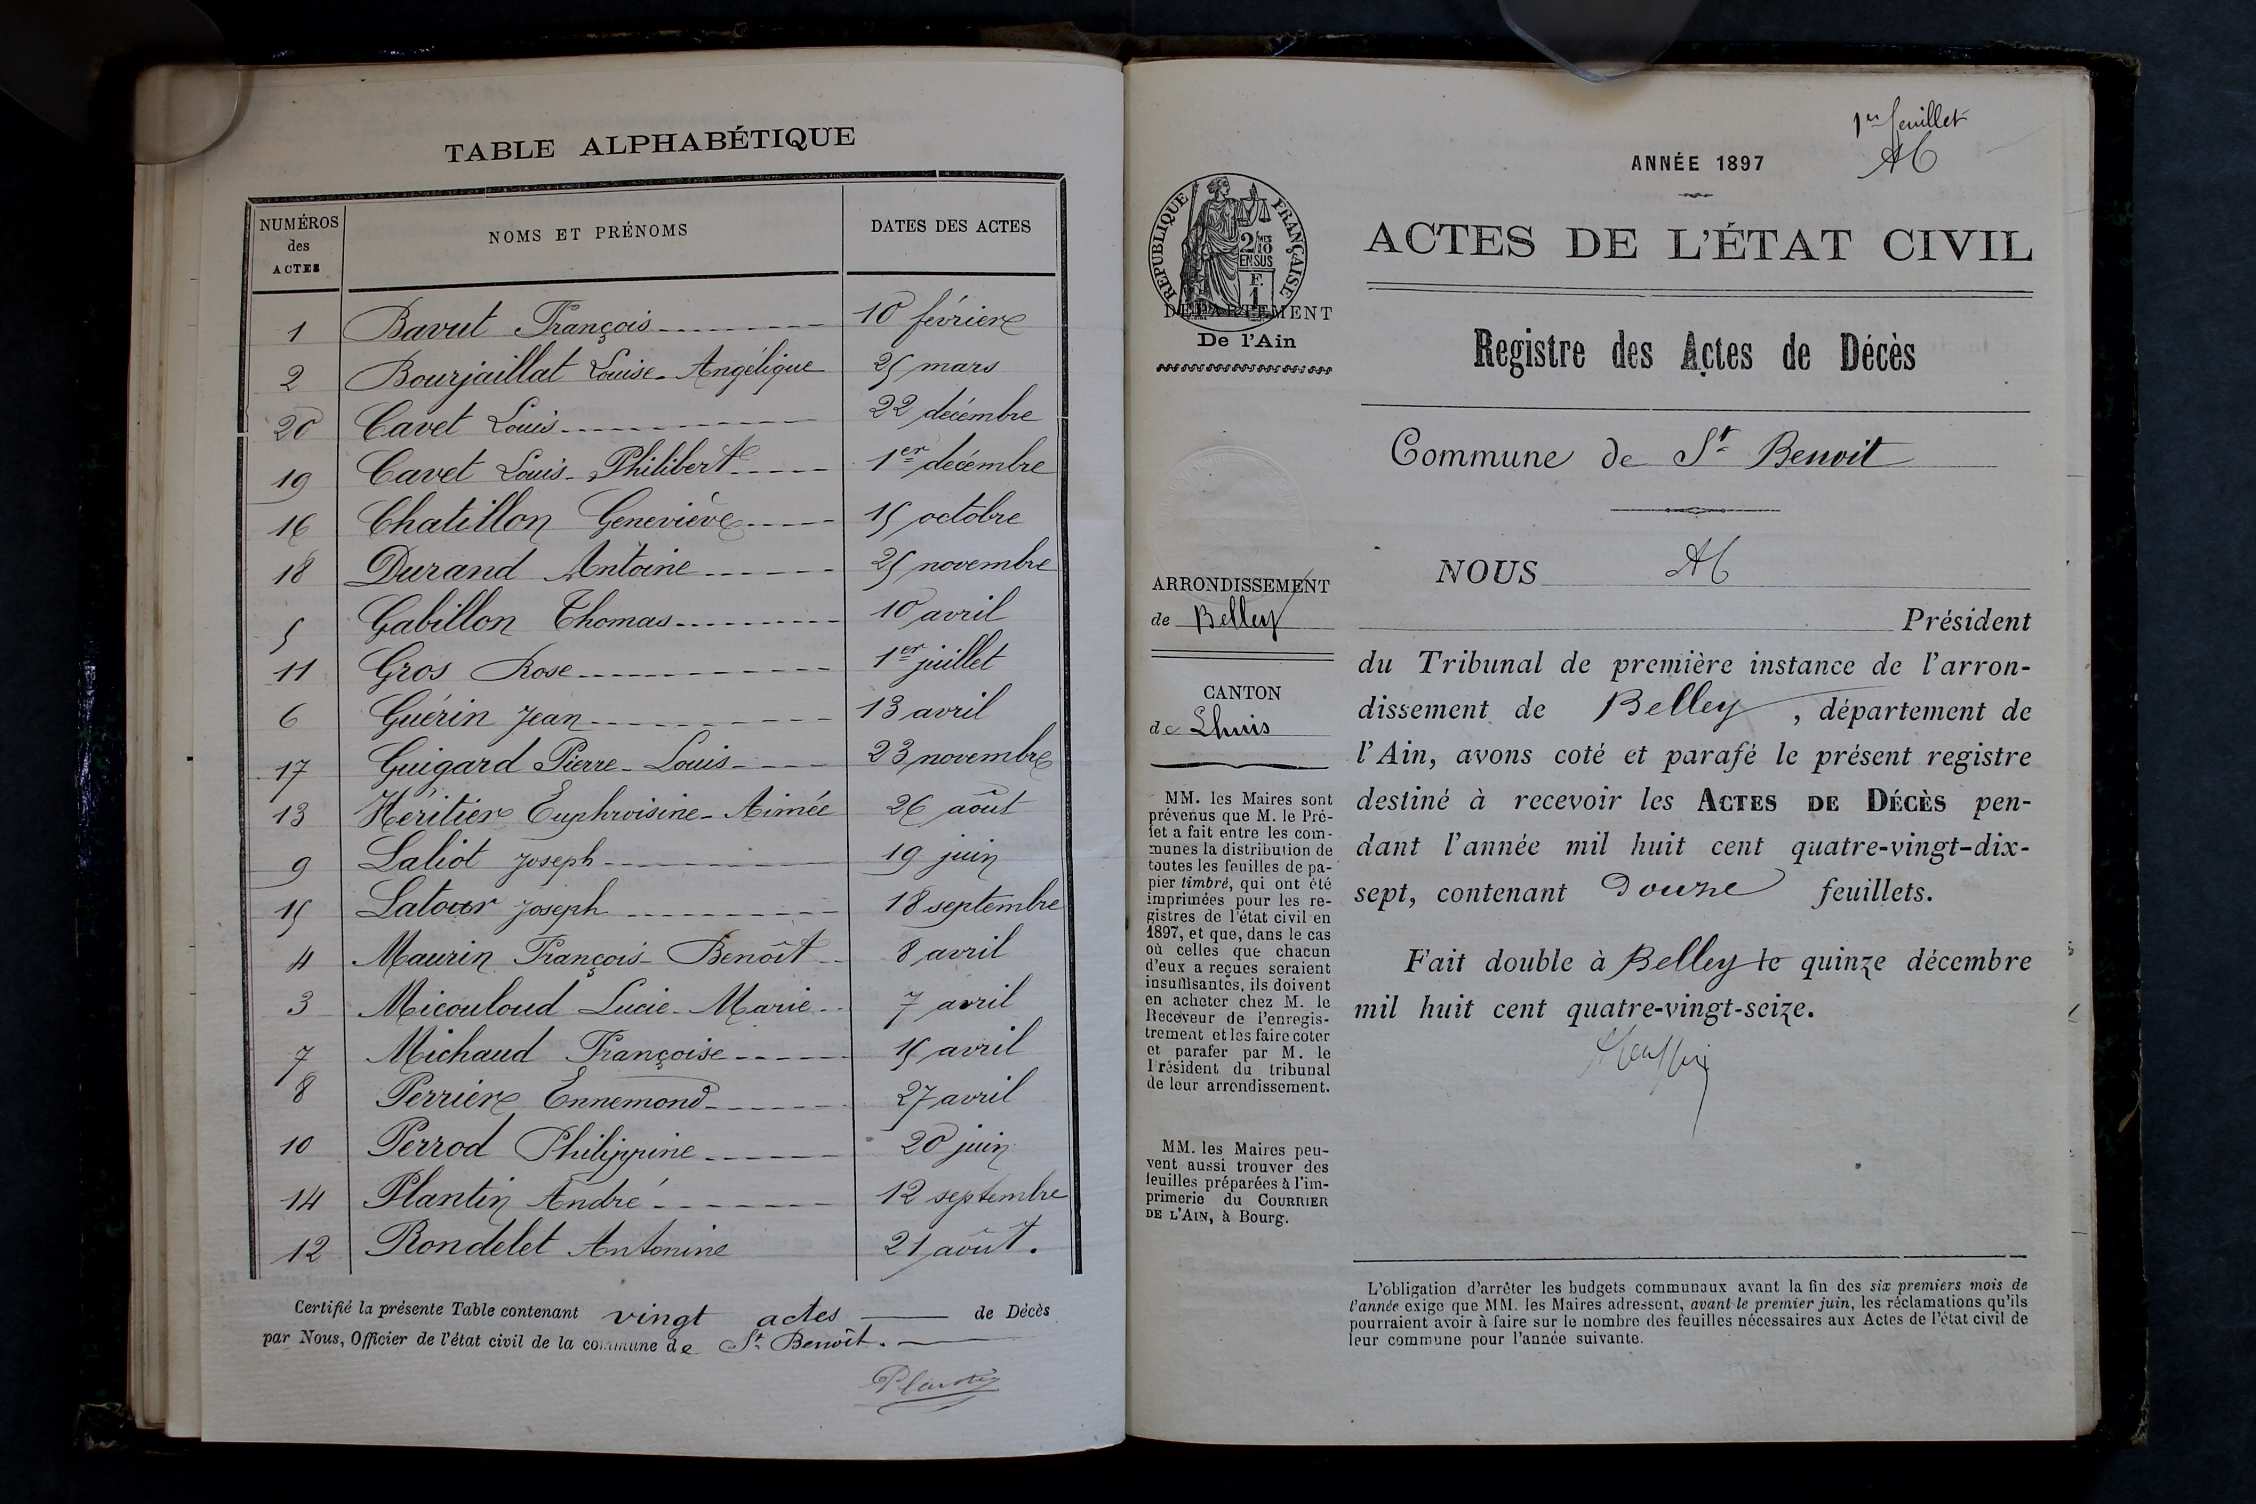 TABLE ALPHABÉTIQUE
NUMÉROS des ACTES NOMS ET PRÉNOMS DATES DES ACTES
1 Bavut François 10 février
2 Bourjaillat Louise-Angélique 25 mars
20 Cavet Louis 22 décembre
19 Cavet Louis-Philibert 1er décembre
16 Chatillon Geneviève 15 octobre
18 Durand Antoine 25 novembre
5 Gabillon Thomas 10 avril
11 Gros Rose 1er juillet
6 Guérin Jean 13 avril
17 Guigard Pierre-Louis 23 novembre
13 Héritier Euphroisine-Aimée 26 août
9 Laliot Joseph 19 juin
15 Latour Joseph 18 septembre
4 Maurin François-Benoît 8 avril
3 Micouloud Lucie-Marie 7 avril
7 Michaud Françoise 15 avril
8 Perrière Ennemond 27 avril
10 Perrod Philippine 20 juin
14 Plantin André 12 septembre
12 Rondelet Antonine 21 août.
Certifié la présente Table contenant vingt actes de Décès
par Nous, Officier de l'état civil de la commune de St Benoît.
Plantin
1er feuillet
ANNÉE 1897
RÉPUBLIQUE FRANÇAISE
2/10 EN SUS
F. 1
DÉPARTEMENT
De l'Ain
ARRONDISSEMENT
de Belley
CANTON
de Lhuis
MM. les Maires sont
prévenus que M. le Pré-
fet a fait entre les com-
munes la distribution de
toutes les feuilles de pa-
pier timbré, qui ont été
imprimées pour les re-
gistres de l'état civil en
1897, et que, dans le cas
où celles que chacun
d'eux a reçues seraient
insuffisantes, ils doivent
en acheter chez M. le
Receveur de l'enregis-
trement et les faire coter
et parafer par M. le
Président du tribunal
de leur arrondissement.
MM. les Maires peu-
vent aussi trouver des
feuilles préparées à l'im-
primerie du COURRIER
DE L'AIN, à Bourg.
ACTES DE L'ÉTAT CIVIL
Registre des Actes de Décès
Commune de St Benoit
NOUS
Président
du Tribunal de première instance de l'arron-
dissement de Belley, département de
l'Ain, avons coté et parafé le présent registre
destiné à recevoir les ACTES DE DÉCÈS pen-
dant l'année mil huit cent quatre-vingt-dix-
sept, contenant Douze feuillets.
Fait double à Belley le quinze décembre
mil huit cent quatre-vingt-seize.
L'obligation d'arrêter les budgets communaux avant la fin des six premiers mois de
l'année exige que MM. les Maires adressent, avant le premier juin, les réclamations qu'ils
pourraient avoir à faire sur le nombre des feuilles nécessaires aux Actes de l'état civil de
leur commune pour l'année suivante.